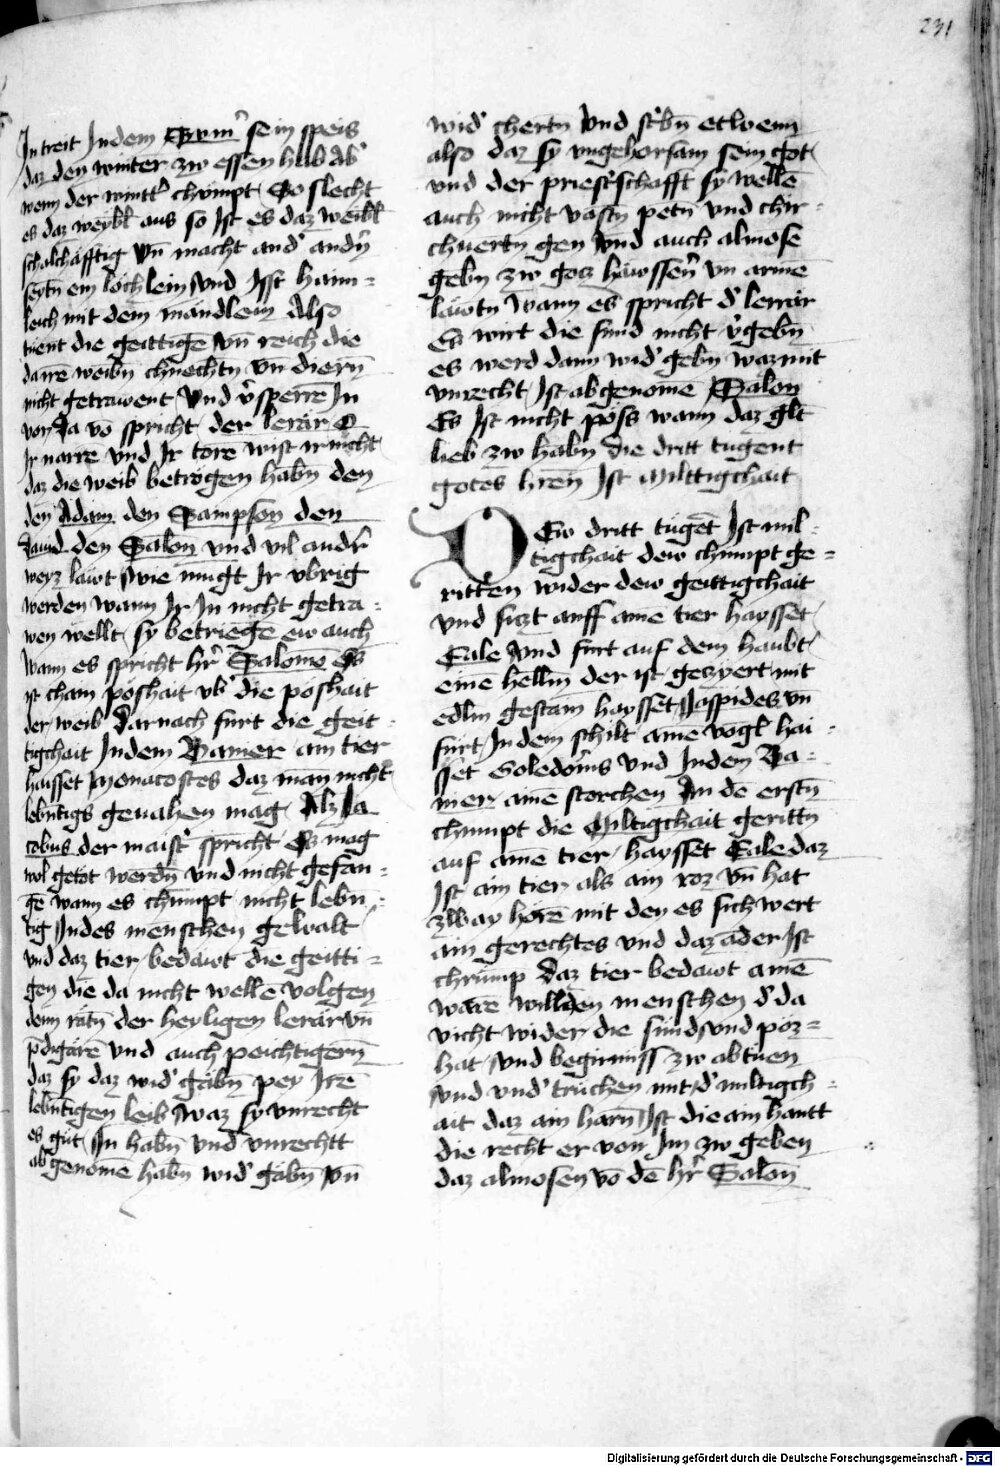 231
Intreit Indem Sum̄ sein speis
daz den winter zw essen hab Ab
wenn der wintt chümpt So slecht
es daz weybl aus so Ist es daz weibl
schalchäfftig vn̄ macht and andn̄
seytn ein löchlein vnd Isst haim=
leich mit dem mändlein Also
tüent die geittigē vn̄ reich die
darre weibn̄ chnechtn̄ vn̄ diern̄
nicht getrawent vnd v̓sperrē In
vor Da vō spricht der lerär O
Ir narrē vnd Ir torē wist ir nicht
daz die weib betrogen habn̄ den
den Adam den Sampson den
Dauid den Salon̄ vnd vil andr̄
weyz läwt wie mügt Ir vbrig
werden wann Ir In nicht getra=
wen wellt sy betriegē ew auch
wann es spricht hr̄ Salomō Es
ist chain poshait vb die poshait
der weib Darnach fürt die geit=
tigchait Indem Banier ain tier
haisset Monacostes daz man nicht
lebn̄tigs geuahen mag Alz Ja
cobus der maist spricht Es mag
wol getöt werdn̄ vnd nicht gefan=
gē wann es chümpt nicht lebn̄=
tig Indes menschen gewalt
vnd daz tier bedäwt die geitti=
gen die da nicht wellē volgen
denn rätn̄ der heyligen lerär vn̄
p̄digärē vnd auch peichtigern̄
daz sy daz wid gäbn̄ pey Irē
lebn̄tigen leib waz sy vnrecht
es güt In habn̄ vnd vnrechtt
abgenomē habn̄ wid gäbn̄ vn̄
wid chertn̄ vnd stbn̄ etwenn
also daz sy vngehorsam sein got
vnd der priestschafft sy wellē
auch nicht vastn̄ petn̄ vnd chir=
chuertn̄ gen vnd auch almosē
gebn̄ zw gotz häwssern̄ vn̄ armē
läwtn̄ wann es spricht d lerrär
Es wirt die sünd nicht v̓gebn̄
es werd dann wid gebn̄ waz mit
vnrecht Ist abgenomē Salon̄
Es Ist nicht pöss wann daz gelt
lieb zw habn̄ die dritt tugent
gotes hren̄ Ist Milttigchait
DEw dritt tugēt Ist mil=
tigchait dew chümpt ge=
ritten wider dew geittigchait
vnd sitzt auff aim̄ē tier haysset
Eale vnd fürt auf dem haubt
einē hellm̄ der ist gezyert mit
edlm̄ gestain haysset Jaspides vn̄
fürt Indem schilt ainē vogl hai=
sset Soledorus vnd Indem Ba=
nier ainē storchen Im dē erstn̄
chümpt die Miltigchait gerittn̄
auf aimē tier haysset Eale daz
Ist ain tier als ain roz vn̄ hat
zway horē mit den es sich wert
ain gerechtes vnd daz āder Ist
chrump Daz tier bedäwt ainē
warē willigen menschen d da
vicht wider die sünd vnd pöz=
hat vnd begirnuss zw abtüen
vnd vnd truchen mit d miltigch=
ait daz ain harn̄ Ist die ain hantt
die recht er von Im zw geben
daz almosen vō dē hr̄ Salon̄
Digitalisierung gefördert durch die Deutsche Forschungsgemeinschaft - DFG